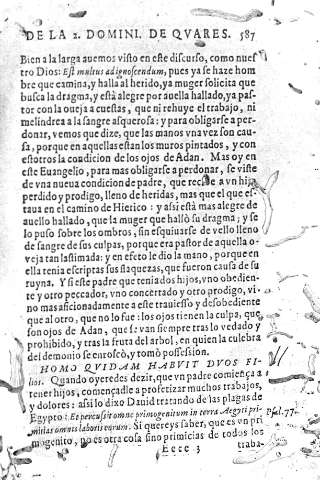 DE LA 2. DOMINI. DE QVARES. 587
Bien a la larga auemos visto en este discurso, como nues
tro Dios: Est multus ad ignoscendum, pues ya se haze hom
bre que camina, y halla al herido, ya muger solicita que
busca la dragma, y està alegre por auella hallado, ya pas-
tor con la oueja a cuestas, que ni rehuye el trabajo, ni
melindrea a la sangre asquerosa: y para obligarse a per-
donar, vemos que dize, que las manos vna vez son cau-
sa, porque en aquellas estan los muros pintados, y con
estotros la condicion de los ojos de Adan. Mas oy en
este Euangelio, para mas obligarse a perdonar, se viste
de vna nueua condicion de padre, que recibe a vn hijo
perdido y prodigo, lleno de heridas, mas que el que es-
taua en el camino de Hierico: y assi està mas alegre de
auello hallado, que la muger que hallò su dragma; y se
lo puso sobre los ombros, sin esquiuarse de vello lleno
de sangre de sus culpas, porque era pastor de aquella o-
veja tan lastimada: y en efeto le dio la mano, porque en
ella tenia escriptas sus flaquezas, que fueron causa de su
ruyna. Y si este padre que tenia dos hijos, vno obedien-
te y otro peccador, vno concertado y otro prodigo, vi-
no mas aficionadamente a este trauiesso y desobediente
que al otro, que no lo fue: los ojos tienen la culpa, que
son ojos de Adan, que se van siempre tras lo vedado y
prohibido, y tras la fruta del arbol, en quien la culebra
del demonio se enroscò, y tomò possession.
HOMO QVIDAM HABVIT DVOS FI-
lios. Quando oyeredes dezir, que vn padre comiença a
tener hijos, començadle a profetizar muchos trabajos,
y dolores: assi lo dixo Dauid tratando de las plagas de
Egypto: Et percussit omne primogenitum in terra Aegypti pri-
Psal. 77.
mitias omnis laboris eorum. Si quereys saber, que es vn pri
mogenito, no es otra cosa sino primicias de todos los
Eece 3
traba-